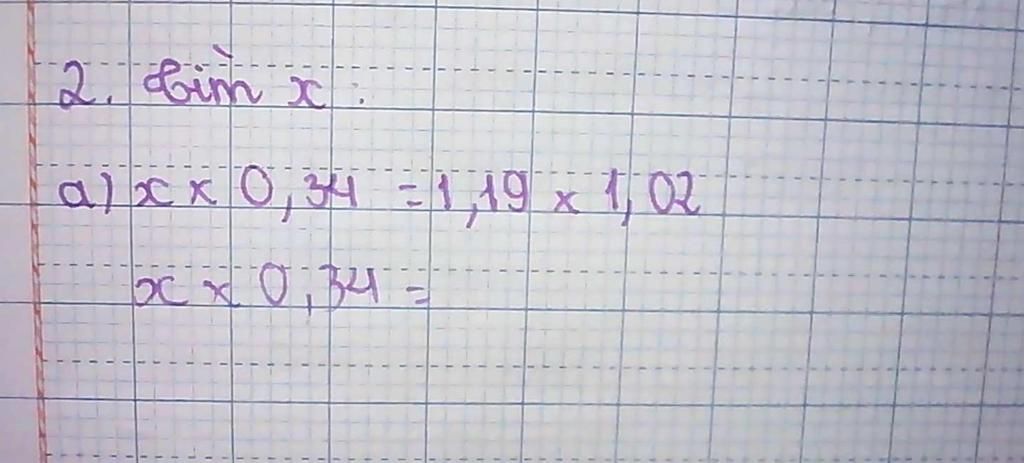 2. Tìm x :
a) x x 0,34 = 1,19 x 1,02
x x 0,34 =